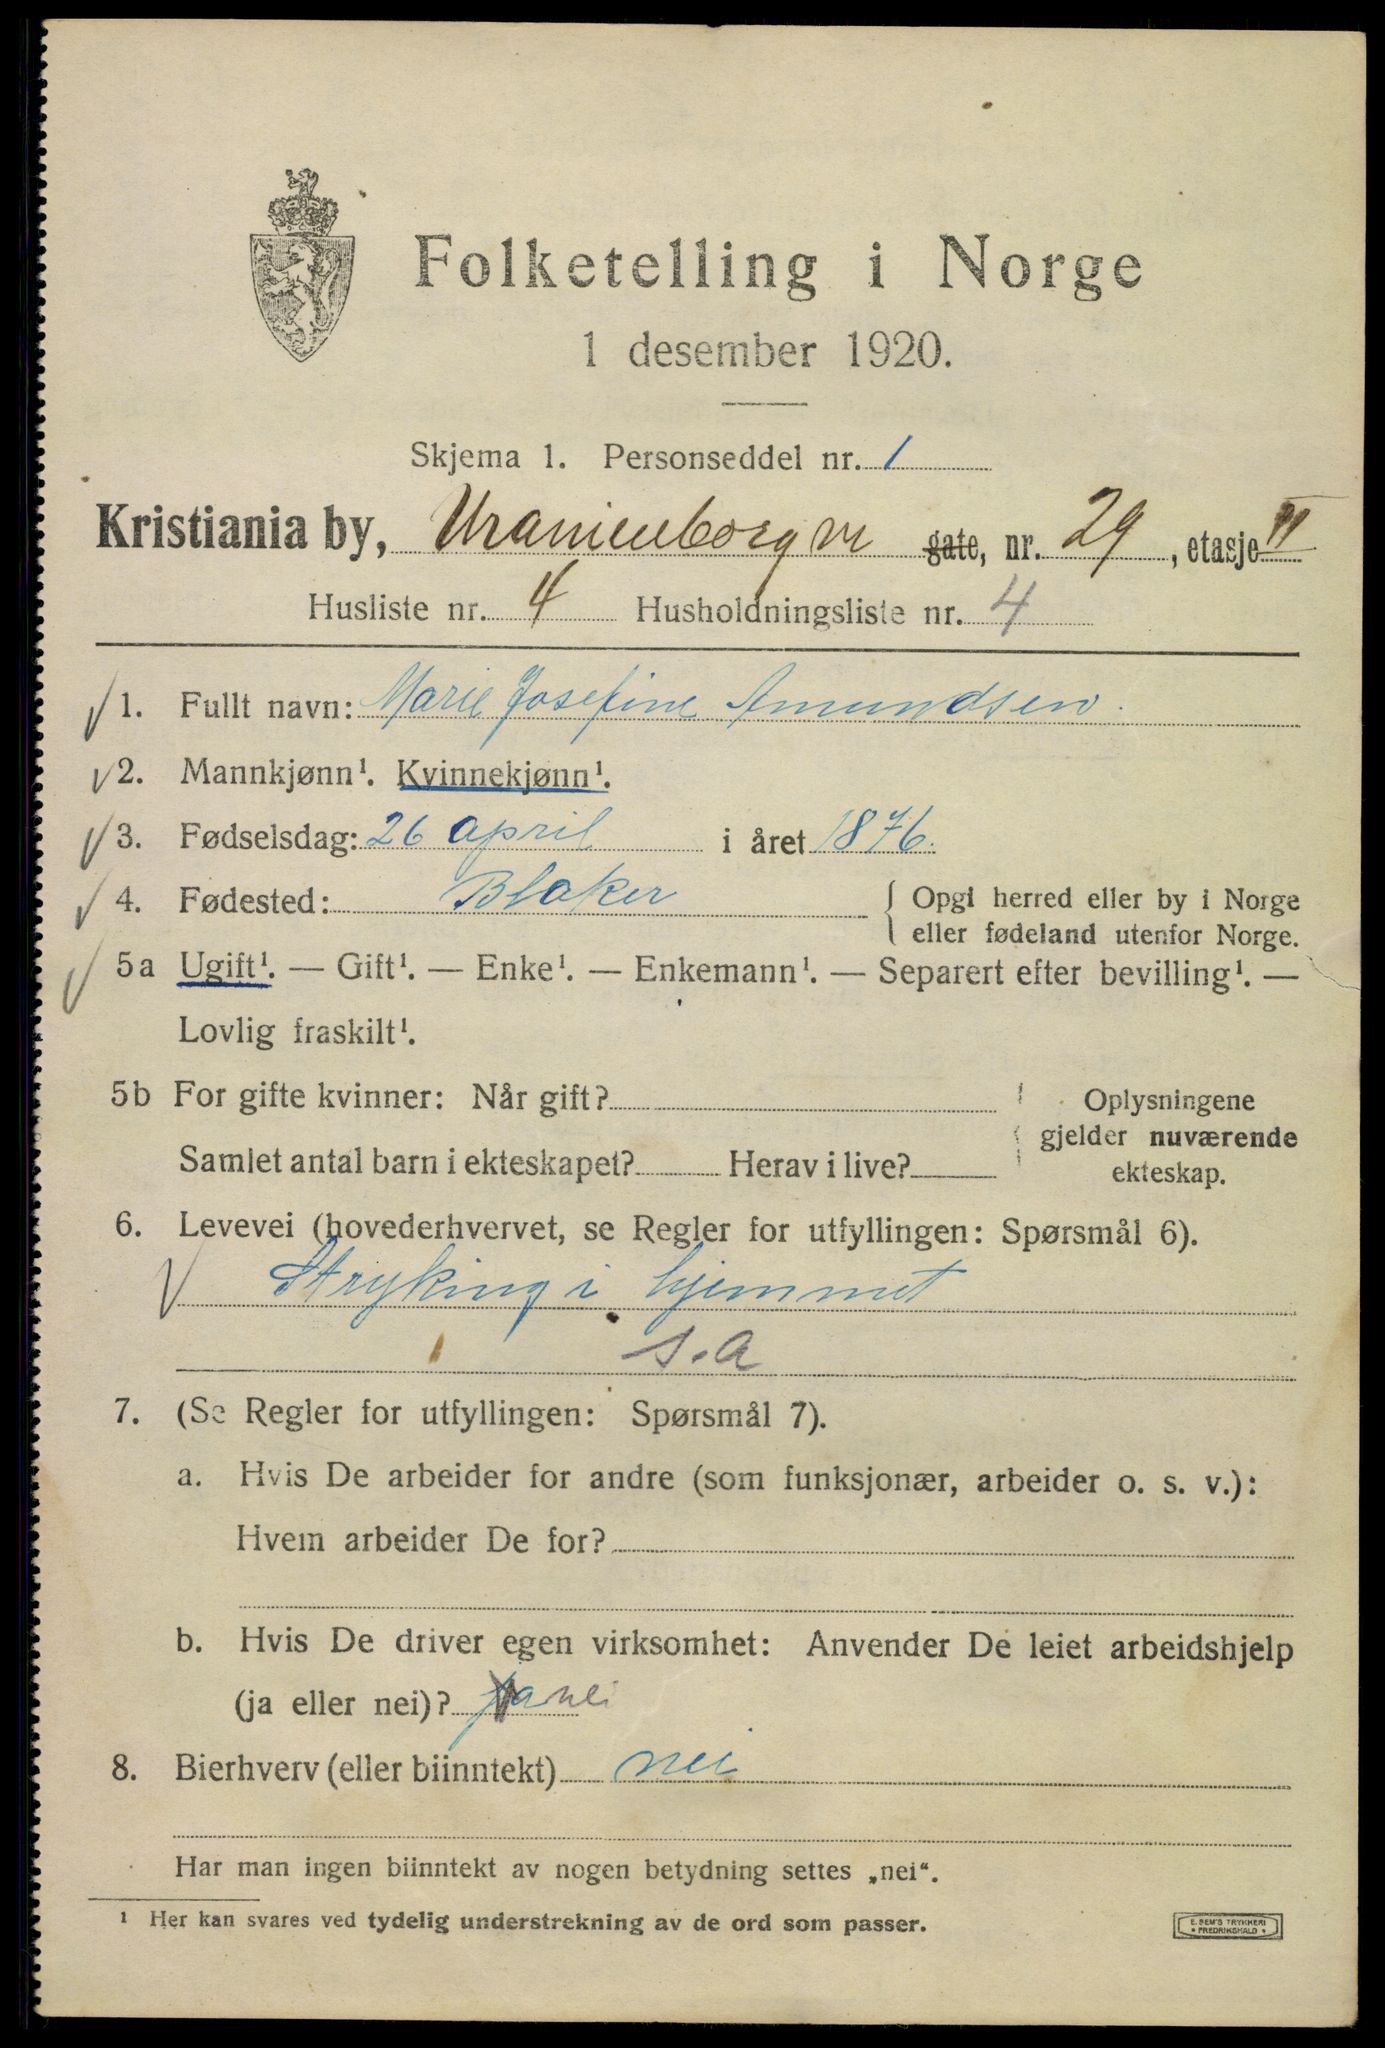 Folketelling i Norge
1 desember 1920.
Skjema 1. Personseddel nr. 1
Kristiania by, Uranienborg vn gate, nr. 29, etasje II
Husliste nr. 4 Husholdningsliste nr. 4
1. Fullt navn: Marie Josefine Amundsen.
2. Mannkjønn¹. Kvinnekjønn¹.
3. Fødselsdag: 26 april i året 1876.
4. Fødested: Blaker { Opgi herred eller by i Norge
eller fødeland utenfor Norge.
5a Ugift¹. — Gift¹. — Enke¹. — Enkemann¹. — Separert efter bevilling¹. —
Lovlig fraskilt¹.
5b For gifte kvinner: Når gift? Oplysningene
gjelder nuværende
Samlet antal barn i ekteskapet? Herav i live? ekteskap.
6. Levevei (hovederhvervet, se Regler for utfyllingen: Spørsmål 6).
Stryking i hjemmet
s.a
7. (Se Regler for utfyllingen: Spørsmål 7).
a. Hvis De arbeider for andre (som funksjonær, arbeider o. s. v.):
Hvem arbeider De for?
b. Hvis De driver egen virksomhet: Anvender De leiet arbeidshjelp
(ja eller nei)? ja nei
8. Bierhverv (eller biinntekt) nei
Har man ingen biinntekt av nogen betydning settes „nei“.
¹ Her kan svares ved tydelig understrekning av de ord som passer.
E. SEM'S TRYKKERI
• FREDRIKSHALD •